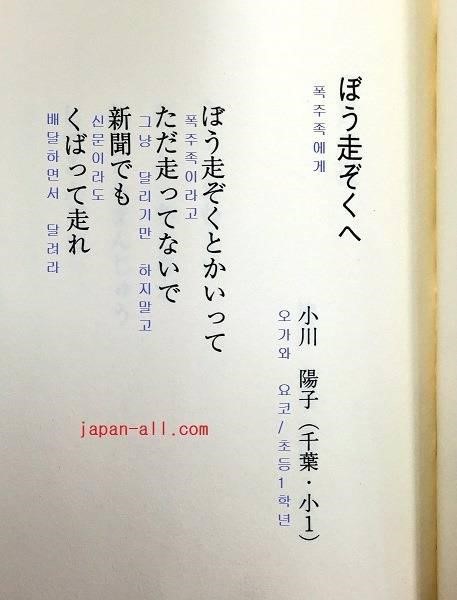 ぼう走ぞくへ
폭주족에게
小川 陽子（千葉・小1）
오가와 요코/초등1학년
ぼう走ぞくとかいって
폭주족이라고
ただ走ってないで
그냥 달리기만 하지말고
新聞でも
신문이라도
くばって走れ
배달하면서 달려라
japan-all.com